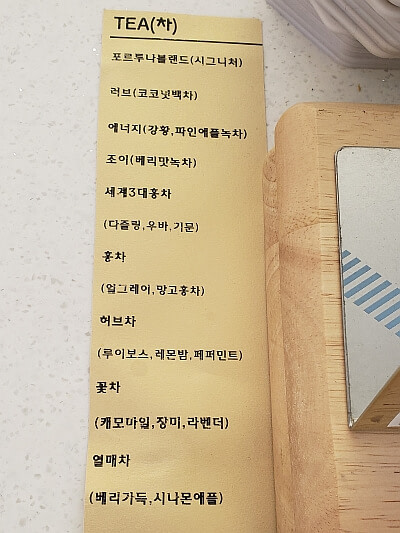 TEA(차)
포르투나블랜드(시그니처)
러브(코코넛백차)
에너지(강황,파인애플녹차)
조이(베리맛녹차)
세계3대홍차
(다즐링,우바,기문)
홍차
(얼그레이,망고홍차)
허브차
(루이보스,레몬밤,페퍼민트)
꽃차
(캐모마일,장미,라벤더)
열매차
(베리가득,시나몬애플)